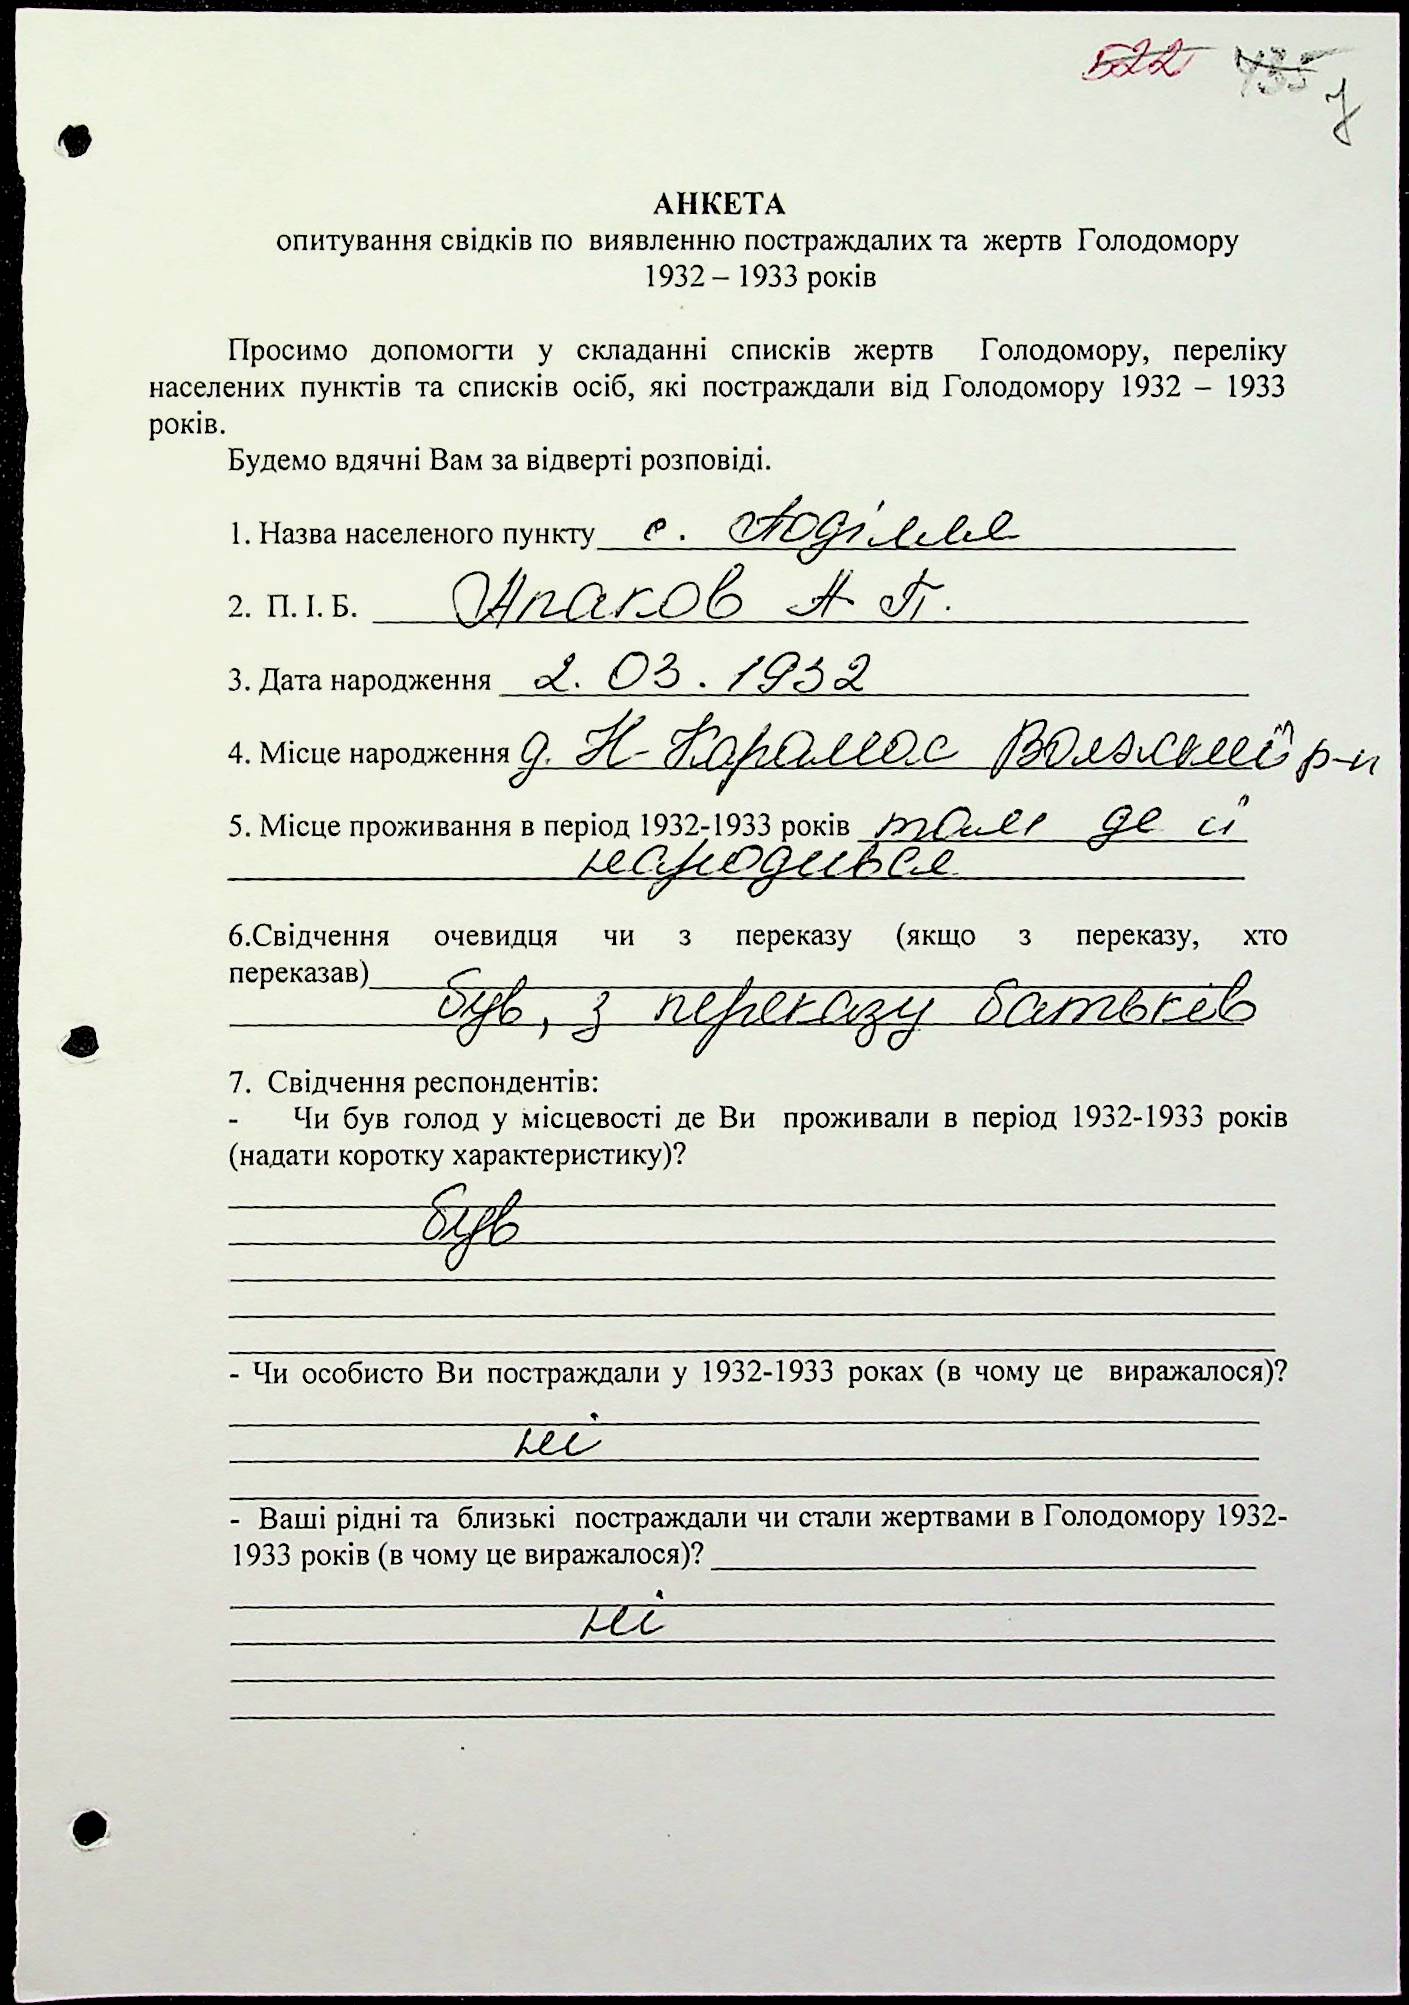 522 735 7
АНКЕТА
опитування свідків по виявленню постраждалих та жертв Голодомору
1932 – 1933 років
Просимо допомогти у складанні списків жертв Голодомору, переліку
населених пунктів та списків осіб, які постраждали від Голодомору 1932 – 1933
років.
Будемо вдячні Вам за відверті розповіді.
1. Назва населеного пункту с. Поділля
2. П. І. Б. Апаков А. П.
3. Дата народження 2. 03. 1932
4. Місце народження д. Н-Карамас Волжский р-н
5. Місце проживання в період 1932-1933 років там де й
народився
6.Свідчення очевидця чи з переказу (якщо з переказу, хто
переказав)
був, з переказу батьків
7. Свідчення респондентів:
- Чи був голод у місцевості де Ви проживали в період 1932-1933 років
(надати коротку характеристику)?
був
- Чи особисто Ви постраждали у 1932-1933 роках (в чому це виражалося)?
ні
- Ваші рідні та близькі постраждали чи стали жертвами в Голодомору 1932-
1933 років (в чому це виражалося)?
ні